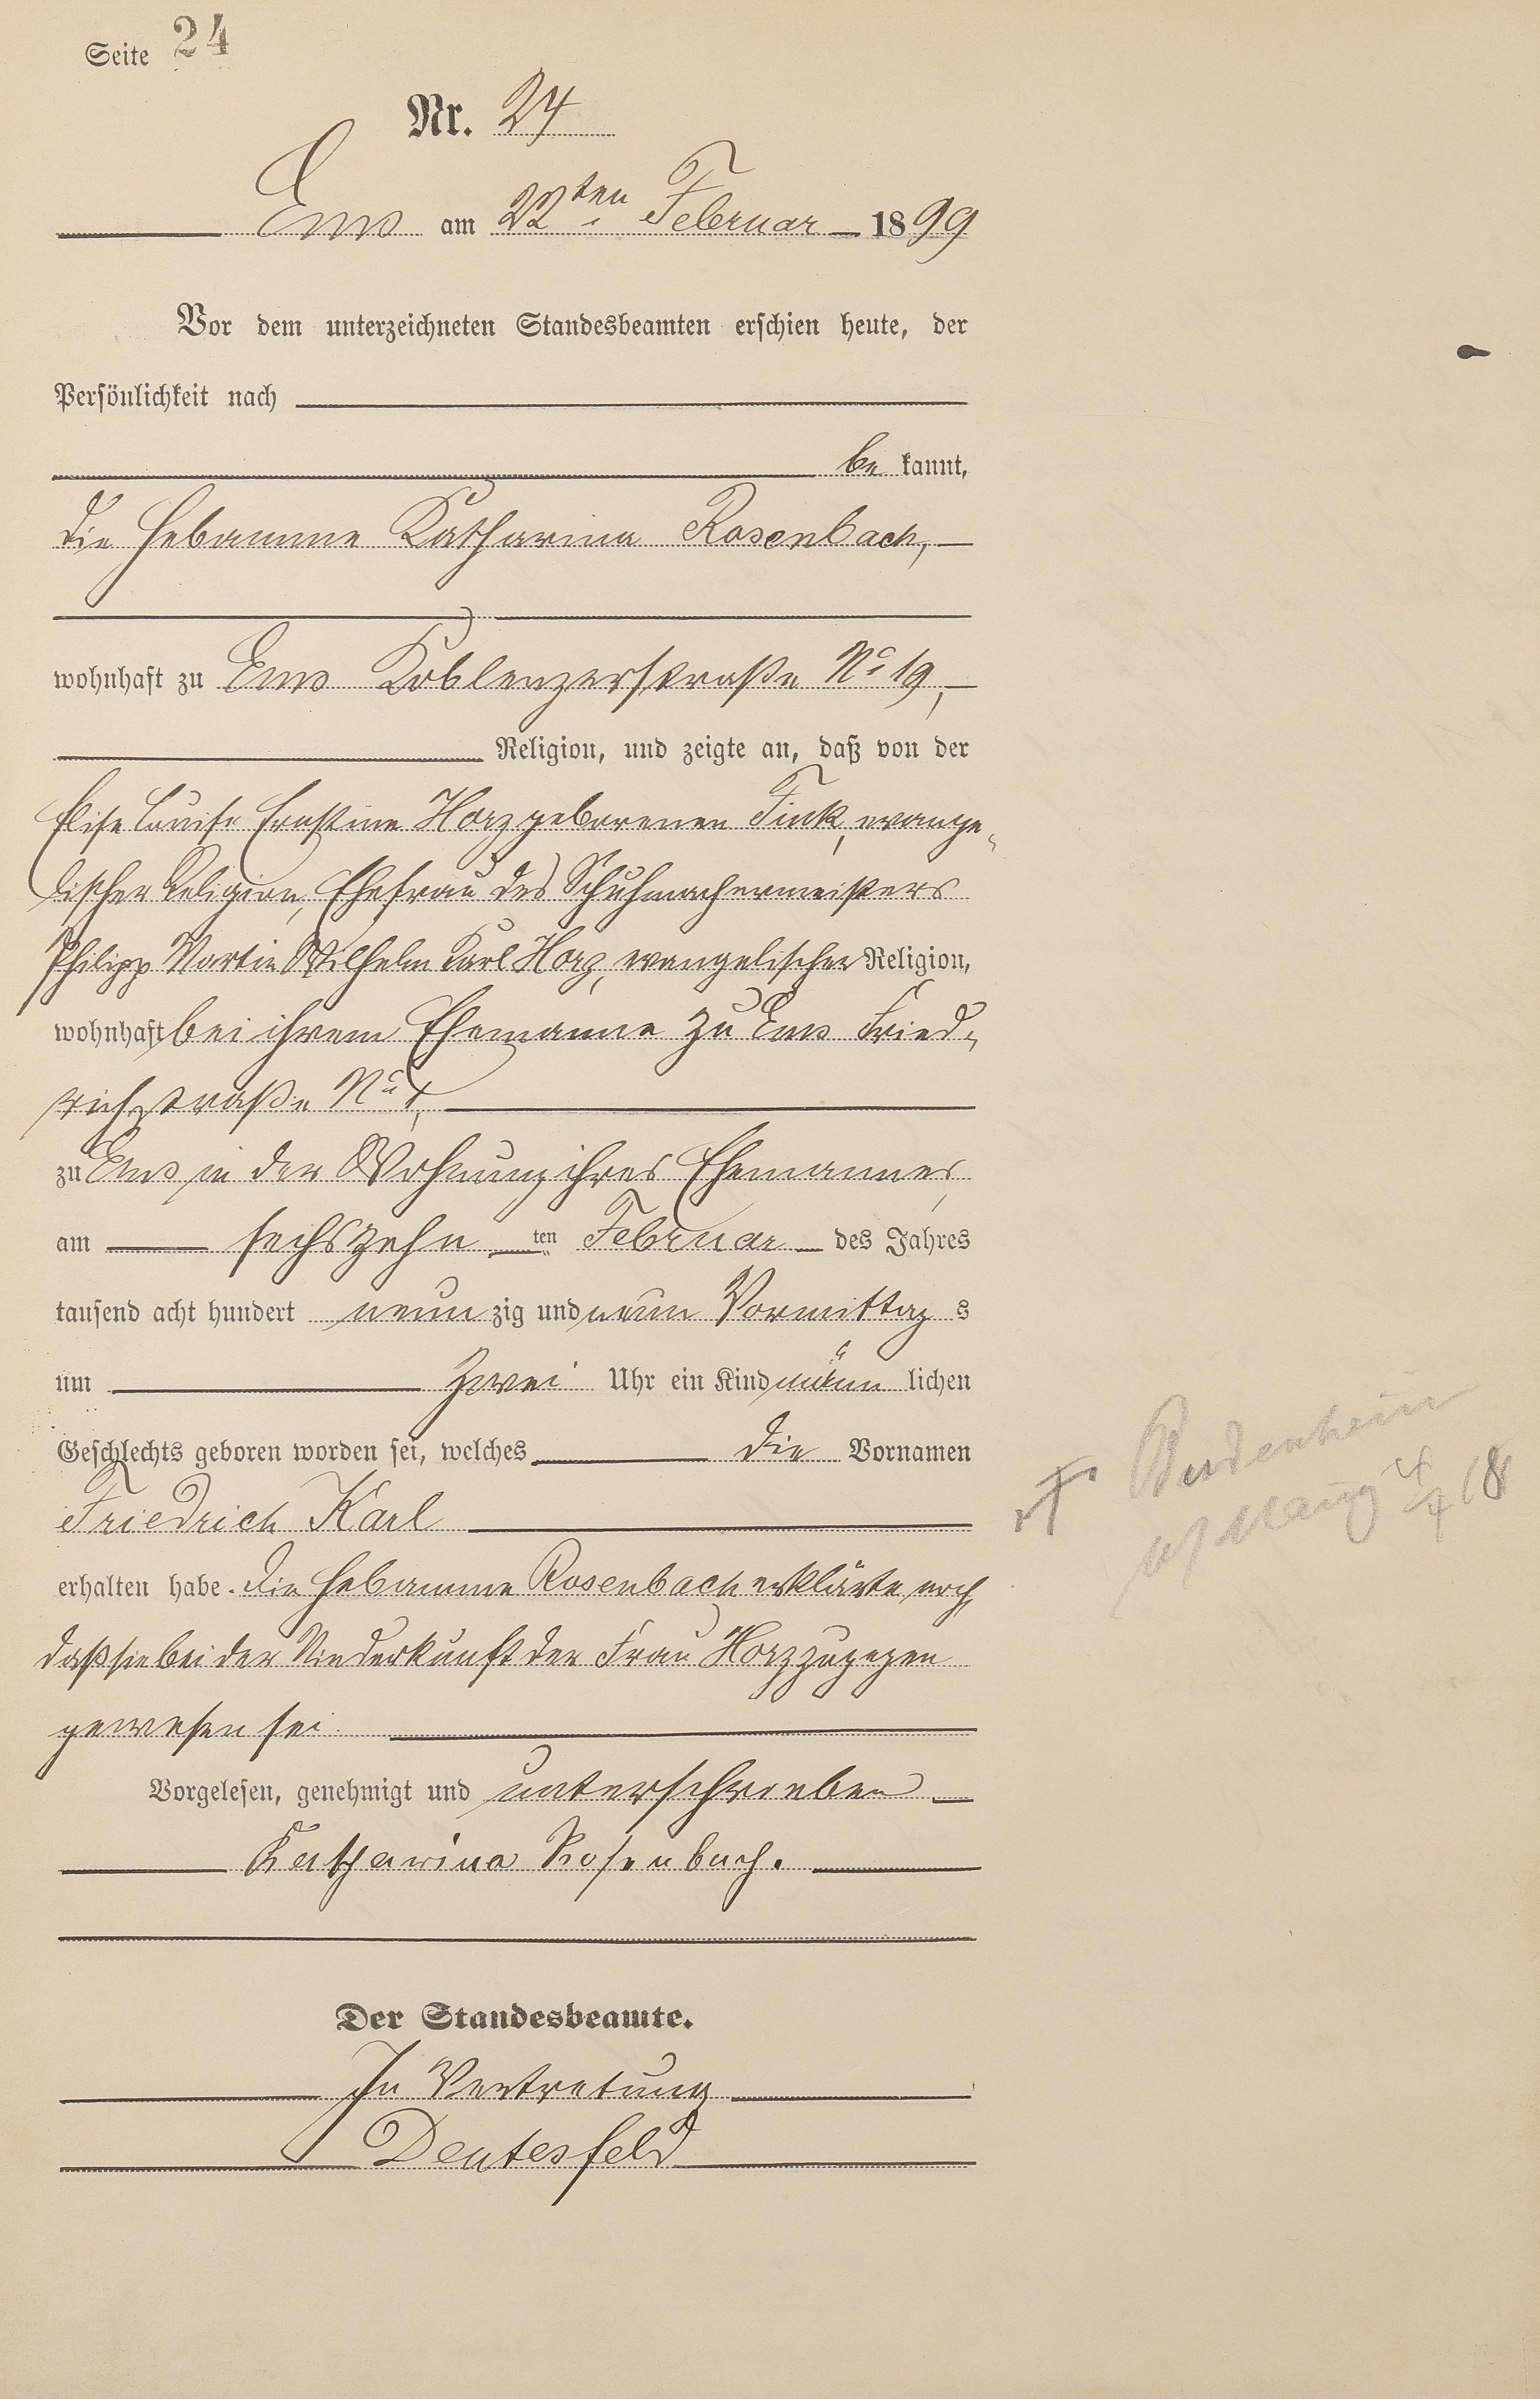 Seite 24
Nr. 24
Ems am 22ten Februar 1899
Vor dem unterzeichneten Standesbeamten erschien heute, der
Persönlichkeit nach
be kannt,
die Hebamme Katharina Rosenbach,
wohnhaft zu Ems Koblenzerstraße No 19,
Religion, und zeigte an, daß von der
Elise Louise Ernstine Horz geborenen Fink, evange-
lischer Religion, Ehefrau des Schuhmachermeisters
Philipp Martin Wilhelm Karl Horz, evangelischer Religion,
wohnhaft bei ihrem Ehemanne zu Ems Fried-
richstraße No
zu Ems in der Wohnung ihres Ehemannes,
am sechszehn ten Februar des Jahres
tausend acht hundert neun zig und neun Vormittag s
um zwei Uhr ein Kind männ lichen
Geschlechts geboren worden sei, welches die Vornamen
Friedrich Karl
erhalten habe. Die Hebamme Rosenbach erklärte noch,
daß sie bei der Niederkunft der Frau Horz zugegen
gewesen sei.
Vorgelesen, genehmigt und unterschrieben
Katharina Rosenbach.
Der Standesbeamte.
In Vertretung
Deutesfeld
4/4 18